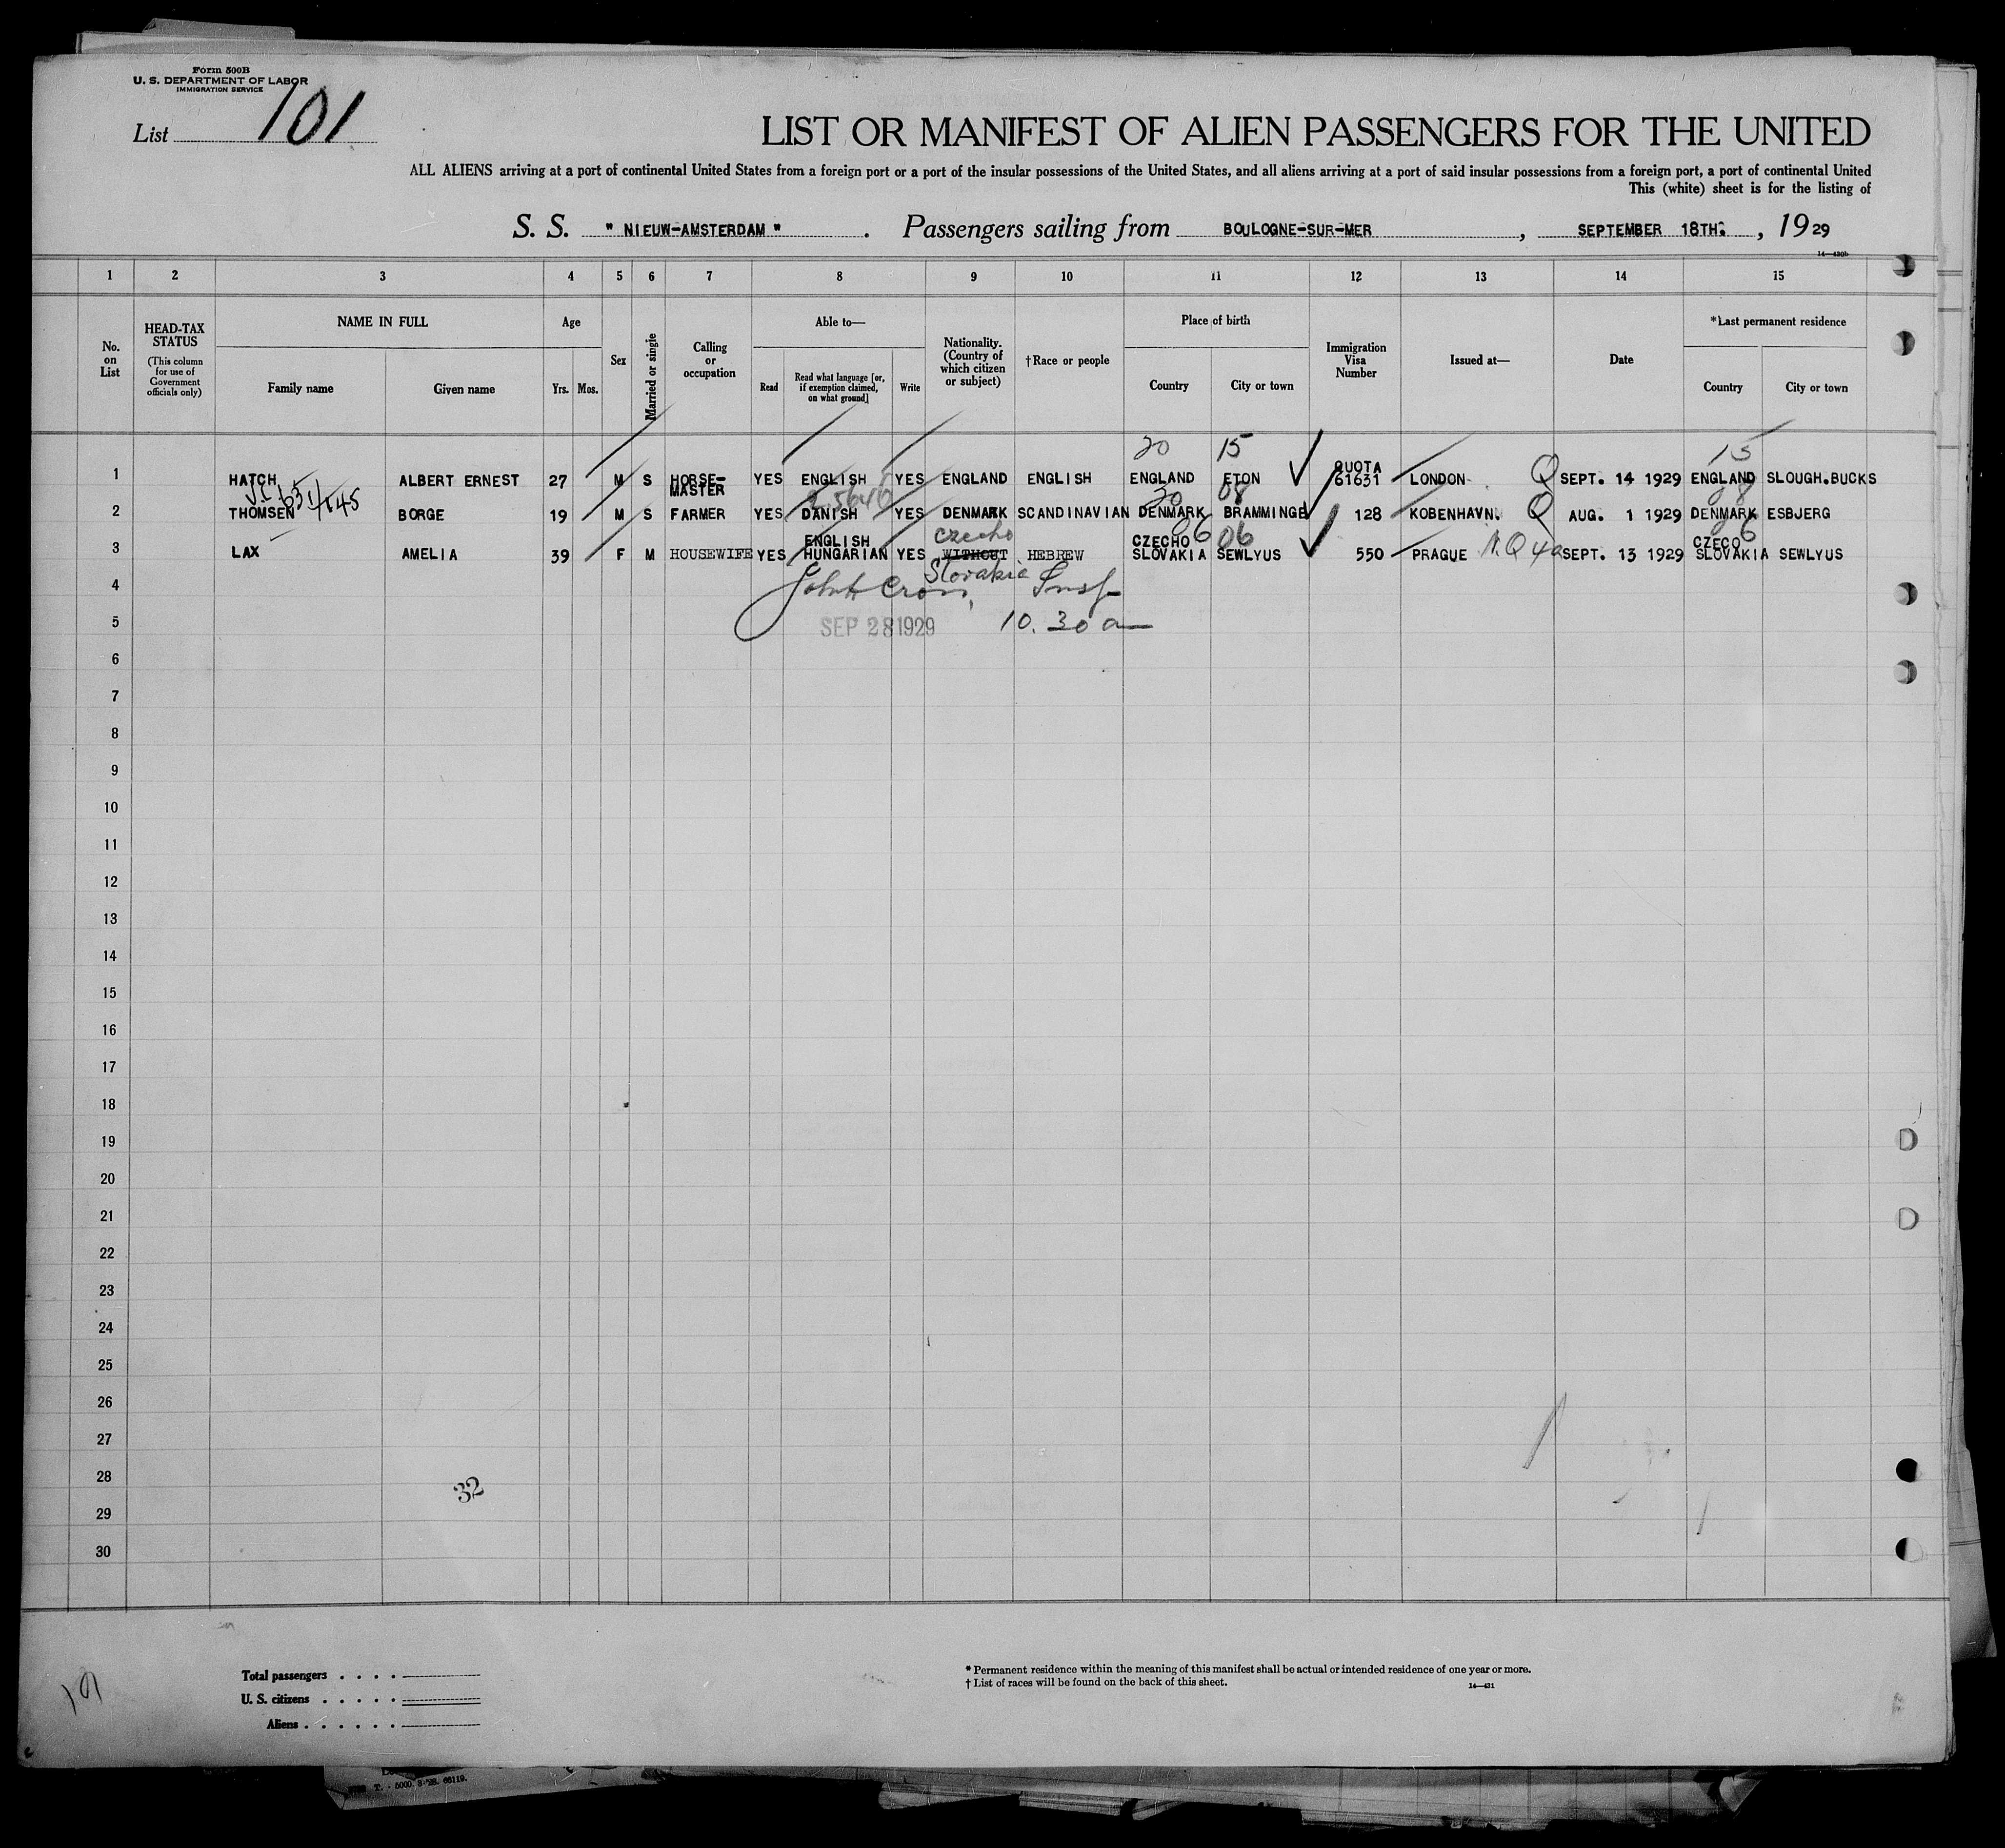 Form 500B
U. S. DEPARTMENT OF LABOR
IMMIGRATION SERVICE
List 101
LIST OR MANIFEST OF ALIEN PASSENGERS FOR THE UNITED
ALL ALIENS arriving at a port of continental United States from a foreign port or a port of the insular possessions of the United States, and all aliens arriving at a port of said insular possessions from a foreign port, a port of continental United
This (white) sheet is for the listing of
S. S. " NIEUW-AMSTERDAM " . Passengers sailing from BOULOGNE-SUR-MER , SEPTEMBER 18TH. , 1929
14—430b
1 2 3 4 5 6 7 8 9 10 11 12 13 14 15
No. on List
HEAD-TAX STATUS
(This column for use of Government officials only)
NAME IN FULL
Family name Given name
Age
Yrs. Mos.
Sex
Married or single
Calling or occupation
Able to—
Read
Read what language [or, if exemption claimed, on what ground]
Write
Nationality. (Country of which citizen or subject)
†Race or people
Place of birth
Country City or town
Immigration Visa Number
Issued at—
Date
*Last permanent residence
Country City or town
20 15 15
1 HATCH ALBERT ERNEST 27 M S HORSE-MASTER YES ENGLISH YES ENGLAND ENGLISH ENGLAND ETON QUOTA 61631 LONDON Q SEPT. 14 1929 ENGLAND SLOUGH.BUCKS
20 08
2 THOMSEN BORGE 19 M S FARMER YES DANISH YES DENMARK SCANDINAVIAN DENMARK BRAMMINGE 128 KOBENHAVN. Q AUG. 1 1929 DENMARK ESBJERG
3 LAX AMELIA 39 F M HOUSEWIFE YES ENGLISH HUNGARIAN YES WITHOUT Czecho Slovakia HEBREW CZECHO SLOVAKIA 06 SEWLYUS 06 550 PRAGUE N.Q 4a SEPT. 13 1929 CZECO SLOVAKIA SEWLYUS
4 John H Cron, Insp
5 SEP 28 1929 10.30 a
6
7
8
9
10
11
12
13
14
15
16
17
18
19
20
21
22
23
24
25
26
27
28
32
29
30
Total passengers . . . .
U. S. citizens . . . . .
Aliens . . . . . .
* Permanent residence within the meaning of this manifest shall be actual or intended residence of one year or more.
† List of races will be found on the back of this sheet.
14—431
101
T. - 5000. 3-'28. 66119.